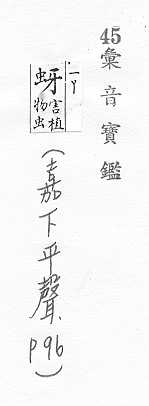 45彙音寶鑑
ㄧㄚ
蚜 害植物虫
(嘉下平聲 p96)